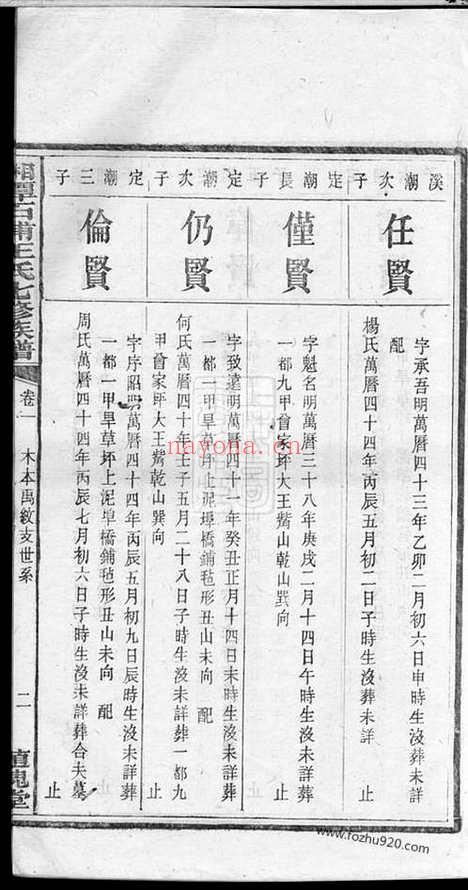 溪潮次子
任賢
字承吾明萬曆四十三年乙卯二月初六日申時生沒未詳葬未詳
配
楊氏萬曆四十四年丙辰五月初二日子時生沒未詳葬未詳
止
定潮長子
僅賢
字魁名明萬曆三十八年庚戌二月十四日午時生沒未詳葬
一都九甲曾家坪大王觜乾山巽向
止
定潮次子
仍賢
字致遠明萬曆四十一年癸丑正月十四日未時生沒未詳葬
一都一甲旱草坪上泥埠橋鋪毡形丑山未向 配
何氏萬曆四十年壬子五月二十八日子時生沒未詳葬一都九
甲曾家坪大王觜乾山巽向
止
定潮三子
倫賢
字序昭明萬曆四十四年丙辰五月初九日辰時生沒未詳葬
一都一甲旱草坪上泥埠橋鋪毡形丑山未向 配
周氏萬曆四十四年丙辰七月初六日子時生沒未詳葬合夫墓
止
湘潭石浦王氏七修族譜
卷一 木本禹紋支世系
二
植槐堂
nayona.cn
www.fozhu920.com